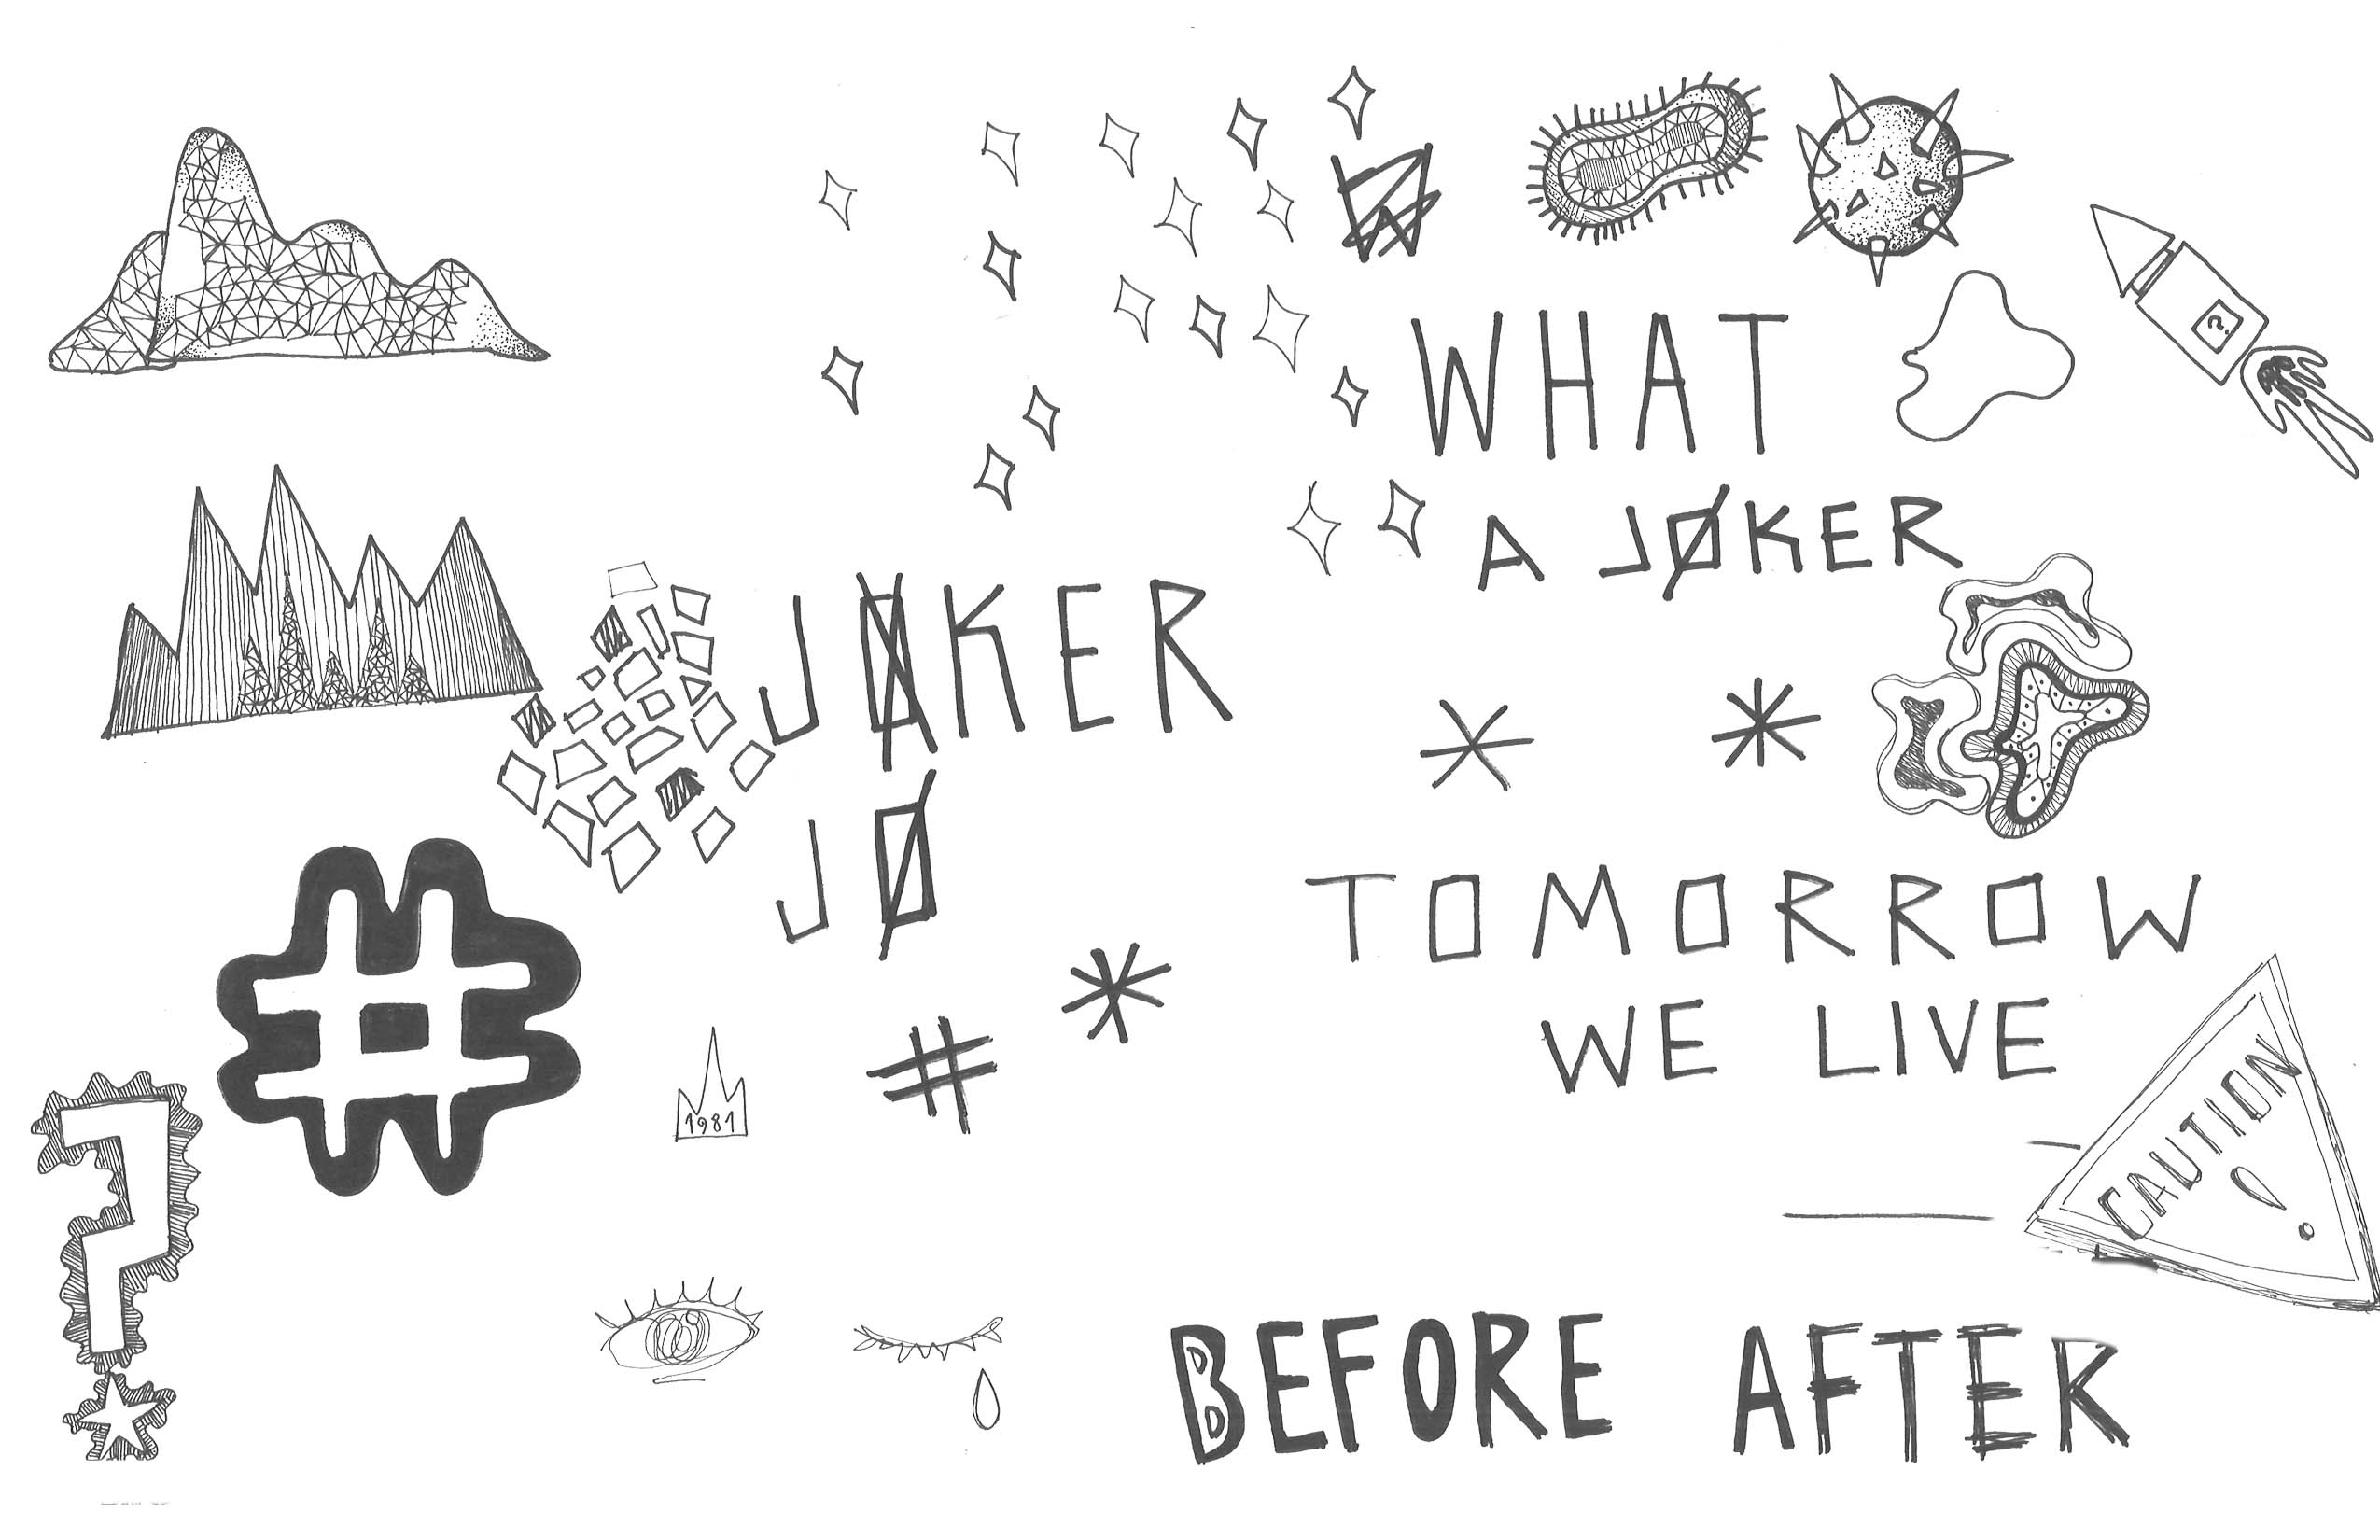 ?
WHAT
A JØKER
JØKER
JØ
*
*
TOMORROW
WE LIVE
#
*
#
1981
CAUTION
!
?
BEFORE AFTER